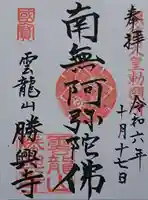 奉拝
令和六年
十月十七日
南無阿弥陀佛
國寳
雲龍山
勝興寺
雲龍山